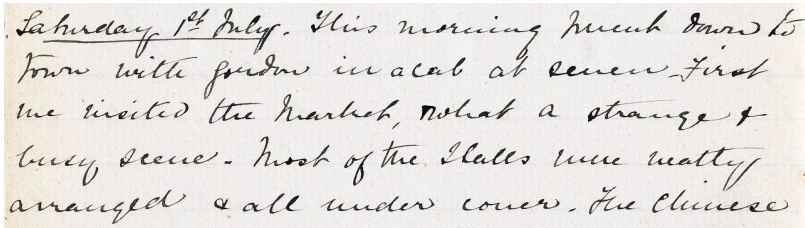 Saturday 1st July. This morning I went down to
town with Gordon in a cab at seven - First
we visited the Market, what a strange &
busy scene - Most of the Stalls were neatly
arranged & all under cover. The Chinese